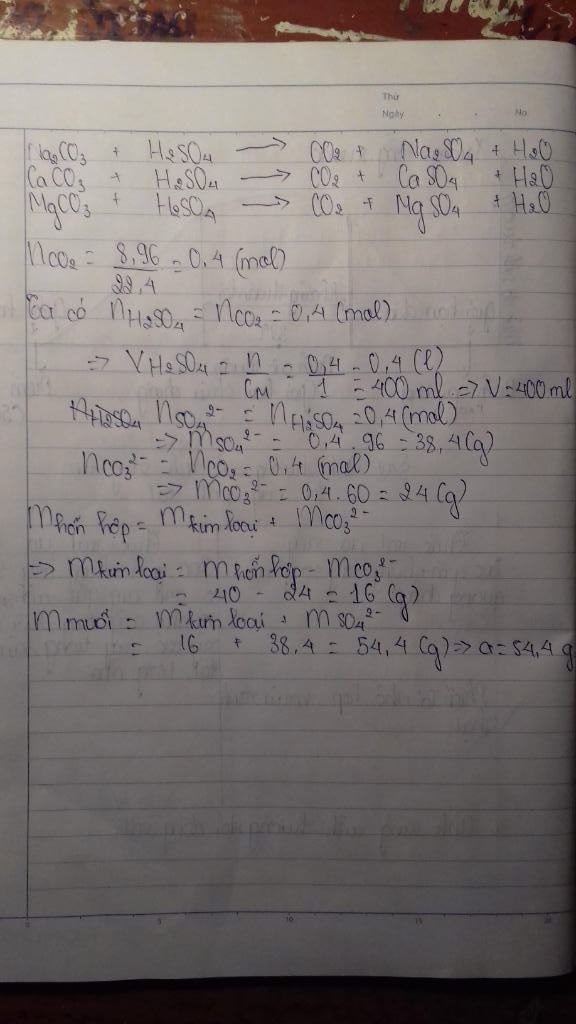 Thứ
Ngày . . No.
Na2CO3 + H2SO4 → CO2 + Na2SO4 + H2O
CaCO3 + H2SO4 → CO2 + CaSO4 + H2O
MgCO3 + H2SO4 → CO2 + MgSO4 + H2O
nCO2 = 8,96/22,4 = 0,4 (mol)
Ta có nH2SO4 = nCO2 = 0,4 (mol)
=> VH2SO4 = n/CM = 0,4/1 = 0,4 (l)
= 400 ml => V = 400 ml
nH2SO4 nSO4²⁻ = nH2SO4 = 0,4 (mol)
=> mSO4²⁻ = 0,4 . 96 = 38,4 (g)
nCO3²⁻ = nCO2 = 0,4 (mol)
=> mCO3²⁻ = 0,4 . 60 = 24 (g)
m hỗn hợp = m kim loại + mCO3²⁻
=> m kim loại = m hỗn hợp - mCO3²⁻
= 40 - 24 = 16 (g)
m muối = m kim loại + mSO4²⁻
= 16 + 38,4 = 54,4 (g) => a = 54,4 g
0 5 10 15 20